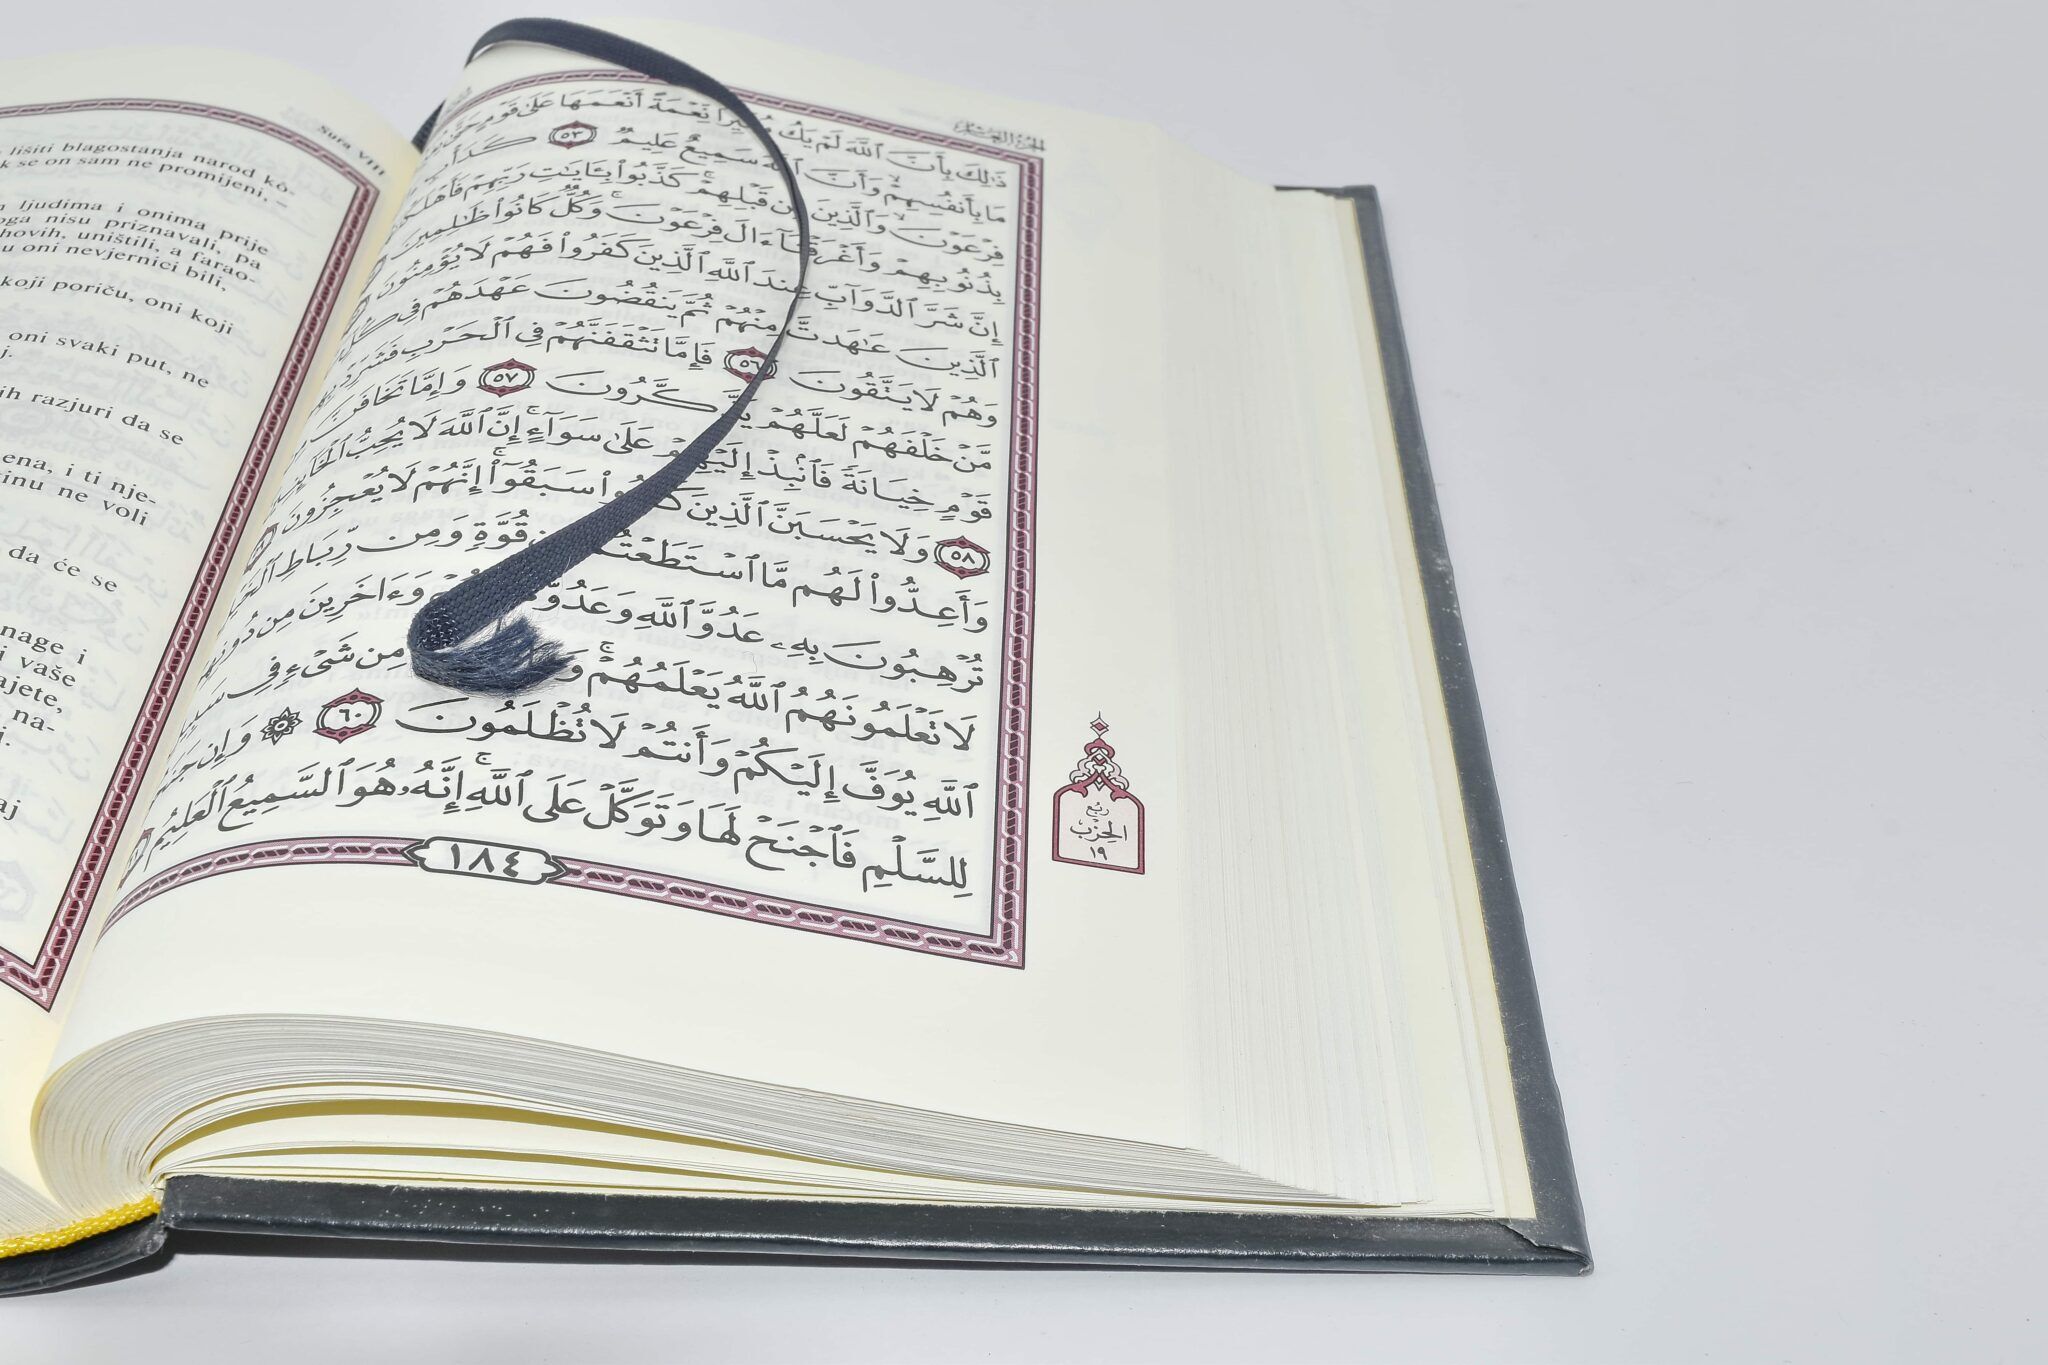 Sura VIII
lišiti blagostanja narod ko-
k se on sam ne promijeni. –
ljudima i onima prije
oga nisu priznavali, pa
hovih, uništili, a farao-
u oni nevjernici bili,
koji poriču, oni koji
oni svaki put, ne
j.
ih razjuri da se
ena, i ti nje-
tinu ne voli
da će se
nage i
i vaše
ajete,
na-
i.
aj
ذَٰلِكَ بِأَنَّ ٱللَّهَ لَمْ يَكُ نِّعْمَةً أَنْعَمَهَا عَلَىٰ قَوْمٍ حَتَّىٰ
مَا بِأَنفُسِهِمْ وَأَنَّ ٱللَّهَ سَمِيعٌ عَلِيمٌ ٥٣ كَدَأْبِ
فِرْعَوْنَ وَٱلَّذِينَ مِن قَبْلِهِمْ كَذَّبُوا۟ بِـَٔايَـٰتِ رَبِّهِمْ فَأَهْلَكْ
بِذُنُوبِهِمْ وَأَغْرَقْنَآ ءَالَ فِرْعَوْنَ وَكُلٌّ كَانُوا۟ ظَـٰلِمِينَ
إِنَّ شَرَّ ٱلدَّوَآبِّ عِندَ ٱللَّهِ ٱلَّذِينَ كَفَرُوا۟ فَهُمْ لَا يُؤْمِنُونَ
ٱلَّذِينَ عَـٰهَدتَّ مِنْهُمْ ثُمَّ يَنقُضُونَ عَهْدَهُمْ فِى كُلِّ
وَهُمْ لَا يَتَّقُونَ ٥٦ فَإِمَّا تَثْقَفَنَّهُمْ فِى ٱلْحَرْبِ فَشَرِّدْ
مَّنْ خَلْفَهُمْ لَعَلَّهُمْ يَذَّكَّرُونَ ٥٧ وَإِمَّا تَخَافَنَّ
قَوْمٍ خِيَانَةً فَٱنۢبِذْ إِلَيْهِمْ عَلَىٰ سَوَآءٍ إِنَّ ٱللَّهَ لَا يُحِبُّ ٱلْخَآئِنِينَ
٥٨ وَلَا يَحْسَبَنَّ ٱلَّذِينَ كَفَرُوا۟ سَبَقُوٓا۟ إِنَّهُمْ لَا يُعْجِزُونَ
وَأَعِدُّوا۟ لَهُم مَّا ٱسْتَطَعْتُم مِّن قُوَّةٍ وَمِن رِّبَاطِ
تُرْهِبُونَ بِهِۦ عَدُوَّ ٱللَّهِ وَعَدُوَّكُمْ وَءَاخَرِينَ مِن دُونِهِمْ
لَا تَعْلَمُونَهُمُ ٱللَّهُ يَعْلَمُهُمْ مِن شَىْءٍ فِى
ٱللَّهِ يُوَفَّ إِلَيْكُمْ وَأَنتُمْ لَا تُظْلَمُونَ ٦٠ وَإِن
لِلسَّلْمِ فَٱجْنَحْ لَهَا وَتَوَكَّلْ عَلَى ٱللَّهِ إِنَّهُۥ هُوَ ٱلسَّمِيعُ ٱلْعَلِيمُ
١٨٤
ربع
الحزب
١٩